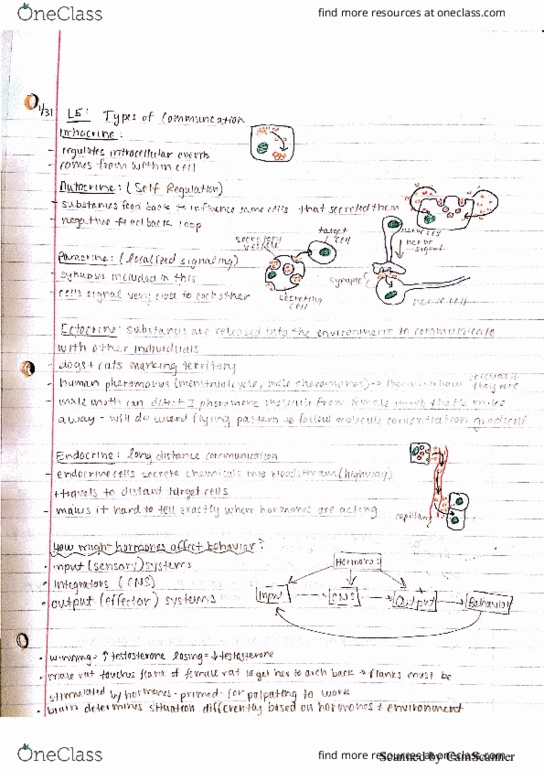 OneClass
find more resources at oneclass.com
1/31
L5: Types of Communication
Intracrine:
- regulates intracellular events
- comes from within cell
Autocrine: (Self Regulation)
- substances feed back to influence same cells that secreted them
- negative feedback loop
Paracrine: (localized signaling)
- synapses included in this
- cells signal very close to each other
secretory vesicle
target cell
secreting cell
nerve cell
nerve signal
synapse
nerve cell
Ectocrine: substances are released into the environment to communicate
with other individuals
- dogs + cats marking territory
- human pheromones (menstrual cycle, male pheromones) →
- male moth can detect 1 pheromone molecule from female moth that's miles
away - will do weird flying pattern to follow molecule concentration gradient
Endocrine: long distance communication
- endocrine cells secrete chemicals into bloodstream (highway)
+ travels to distant target cells
- makes it hard to tell exactly where hormones are acting
capillary
How might hormones affect behavior?
• input (sensory) systems
• integrators (CNS)
• output (effector) systems
Hormones
Input
CNS
Output
Behavior
• winning = ↑ testosterone losing = ↓ testosterone
• male rat touches flank of female rat to get her to arch back → flanks must be
stimulated by hormones - primed - for palpating to work
• brain determines situation differently based on hormones + environment
OneClass
find more resources at oneclass.com
Scanned by CamScanner